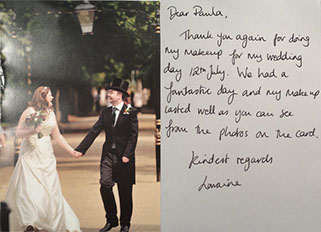 Dear Paula,
Thank you again for doing
my makeup for my wedding
day 12th July. We had a
fantastic day and my makeup
lasted well as you can see
from the photos on the card.
Kindest regards
Loraine